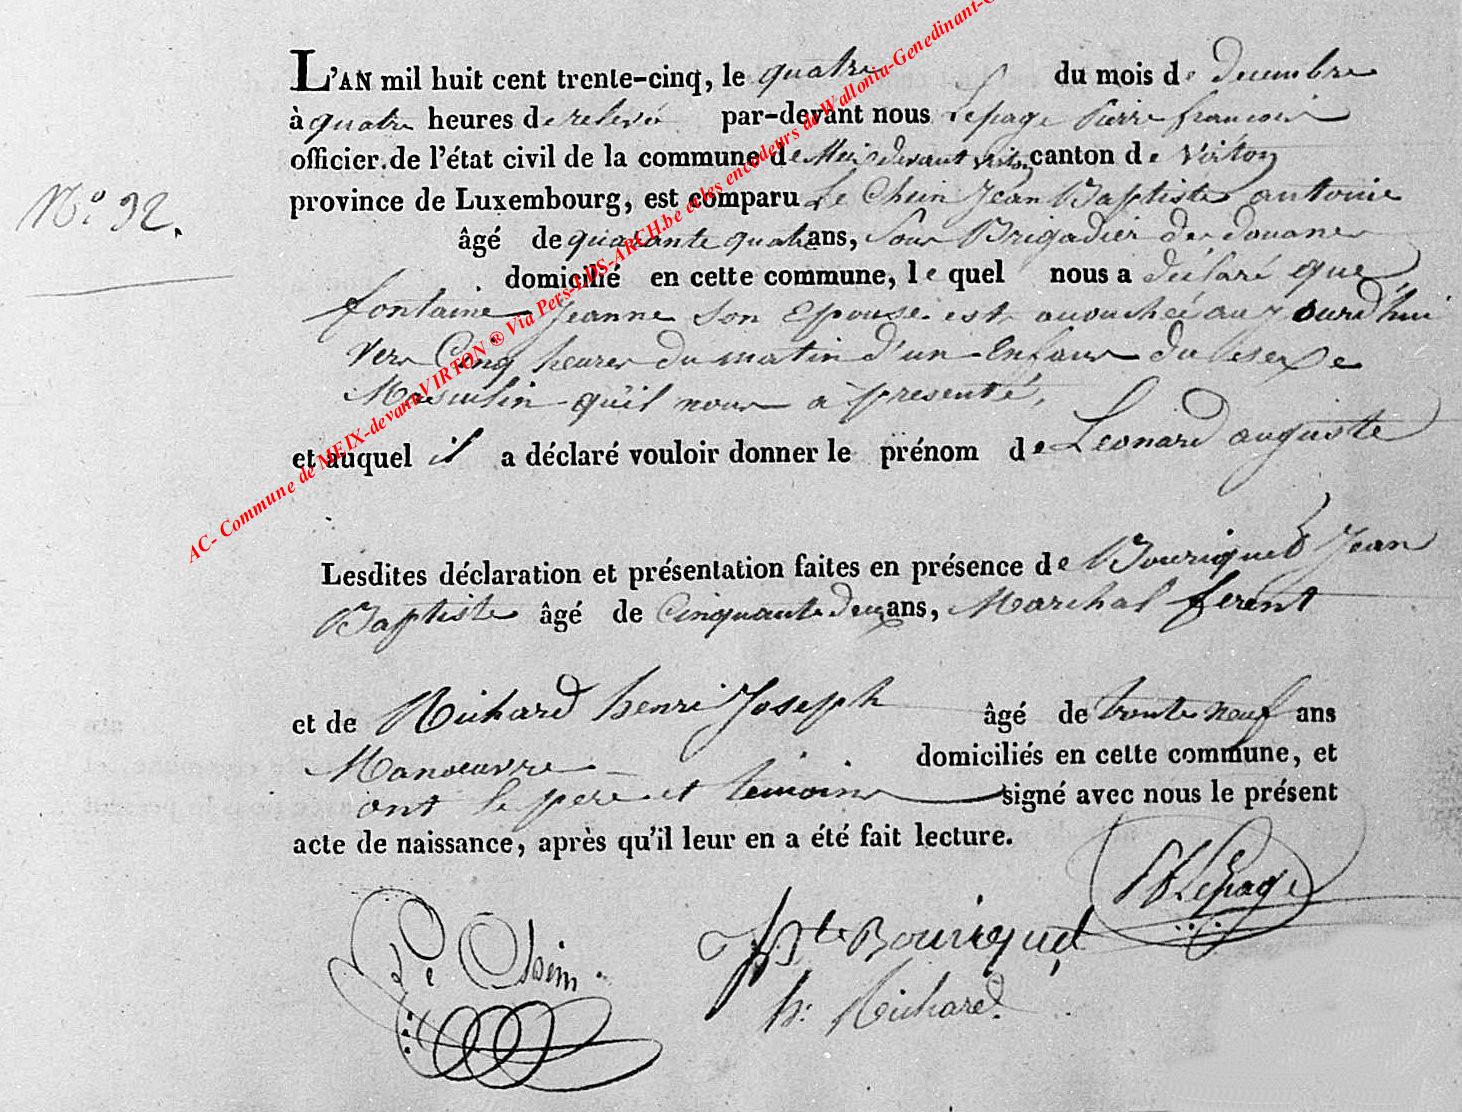 L'AN mil huit cent trente-cinq, le quatre du mois de decembre
à quatre heures de relevée par-devant nous Lepage Pierre francois
officier de l'état civil de la commune de Meix devant Virton canton de Virton
N.º 92.
province de Luxembourg, est comparu Le Jean Baptiste antoine
âgé de quarante quatre ans, Sous Brigadier des douanes
domicilié en cette commune, le quel nous a déclaré que
fontaine Jeanne Son Epouse est acouchée aujourd'hui
Vers Cinq heures du matin d'un Enfant du sexe
Masculin qu'il nous a presenté,
et auquel il a déclaré vouloir donner le prénom de Leonard auguste
Lesdites déclaration et présentation faites en présence de Bouriquet Jean
Baptiste âgé de Cinquante deux ans, Marchal ferent
et de Richard henri Joseph âgé de trente neuf ans
Manoeuvre domiciliés en cette commune, et
ont le pere et temoins signé avec nous le présent
acte de naissance, après qu'il leur en a été fait lecture.
Lepage
Bouriquet
h: Richard.
AC- Commune de MEIX-devant-VIRTON ® Via Pers-LDS-ARCH.be et les encodeurs de Wallonia-Genedinant-